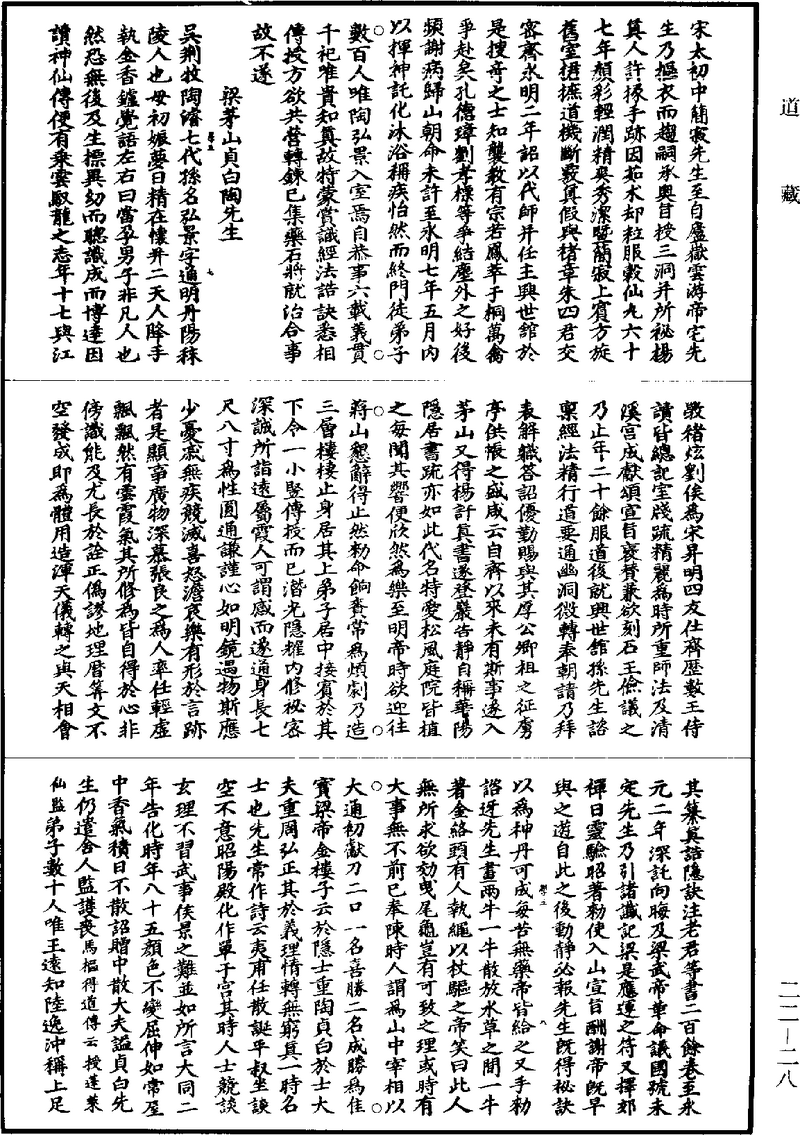 道藏
宋太初中簡寂先生至自廬嶽雲游帝宅先
生乃摳衣而趨嗣承奧旨授三洞并所秘楊
真人許掾手跡因茹朮却粒服穀仙丸六十
七年顏彩輕潤精爽秀潔曁簡寂上賓方旋
舊室捃摭道機斷覈真假與褚章朱四君交
密齊永明二年詔以代師并任主興世館於
是搜奇之士知襲教有宗若鳳萃于桐萬禽
爭赴矣孔德璋劉孝標等爭結塵外之好後
頻謝病歸山朝命未許至永明七年五月内
以揮神託化沐浴稱疾怡然而終門徒弟子
數百人唯陶弘景入室焉自恭事六載義貫
千祀唯貴知真故特蒙賞識經法誥訣悉相
傳授方欲共營轉鍊已集藥石將就治合事
故不遂
梁茅山貞白陶先生
吳荆牧陶濬七代孫名弘景字通明丹陽秣
陵人也母初娠夢日精在懷并二天人降手
執金香鑪覺語左右曰當孕男子非凡人也
然恐無後及生標異幼而聰識成而博達因
讀神仙傳便有乘雲馭龍之志年十七與江
斅褚炫劉俟爲宋昇明四友仕齊歷數王侍
讀皆總記室牋疏精麗爲時所重師法及清
溪宮成獻頌宣旨襃贊兼欲刻石王儉議之
乃止年二十餘服道後就興世館孫先生諮
稟經法精行道要通幽洞微轉奉朝請乃拜
表解職答詔優勤賜與甚厚公卿祖之征虜
亭供帳之盛咸云自齊以來未有斯事遂入
茅山又得楊許真書遂登巖告靜自稱華陽
隱居書疏亦如此代名特愛松風庭院皆植
之每聞其響便欣然爲樂至明帝時欲迎往
蔣山懇辭得止然勅命餉賚常爲煩劇乃造
三層樓棲止身居其上弟子居中接賓於其
下令一小豎傳授而已潛光隱耀内修秘密
深誠所詣遠屬霞人可謂感而遂通身長七
尺八寸爲性圓通謙謹心如明鏡遇物斯應
少憂戚無疾競滅喜怒澹哀樂有形於言跡
者是顯事廣物深慕張良之爲人率任輕虛
飄飄然有雲霞氣其所修爲皆自得於心非
傍識能及尤長於詮正僞謬地理曆筭文不
空發成即爲體用造渾天儀轉之與天相會
其纂真誥隱訣注老君等書二百餘卷至永
元二年深託向晦及梁武帝革命議國號未
定先生乃引諸讖記梁是應運之符又擇郊
禪日靈驗昭著勑使入山宣旨酬謝帝既早
與之遊自此之後動靜必報先生既得秘訣
以爲神丹可成每苦無藥帝皆給之又手勑
詔迓先生畫兩牛一牛散放水草之間一牛
著金絡頭有人執繩以杖驅之帝笑曰此人
無所求欲効曳尾龜豈有可致之理或時有
大事無不前已奉陳時人謂爲山中宰相以
大通初獻刀二口一名喜勝二名成勝爲佳
寶梁帝金樓子云於隱士重陶貞白於士大
夫重周弘正其於義理情轉無窮真一時名
士也先生常作詩云夷甫任散誕平叔坐談
空不意昭陽殿化作單于宮其時人士競談
玄理不習武事侯景之難並如所言大同二
年告化時年八十五顏色不變屈伸如常屋
中香氣積日不散詔贈中散大夫謚貞白先
生仍遣舍人監護喪馬樞得道傳云授蓬萊
仙監弟子數十人唯王遠知陸逸沖稱上足
二二—二八